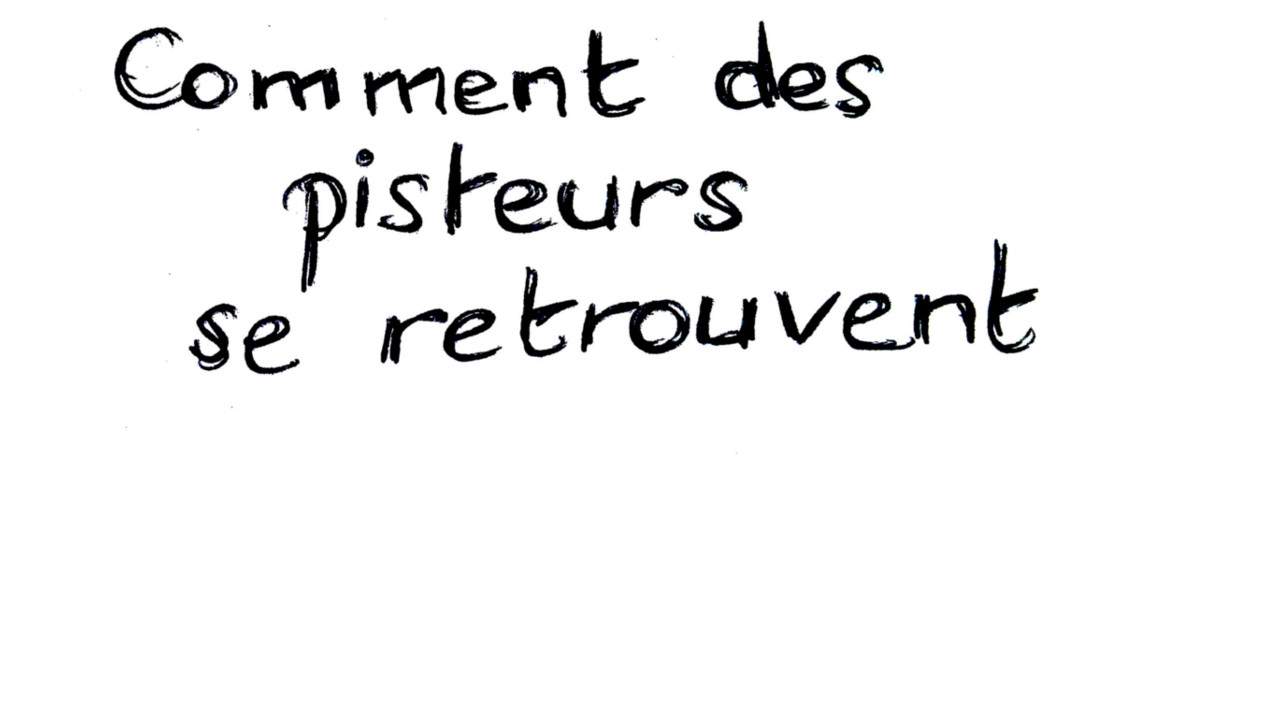 Comment des
pisteurs
se retrouvent